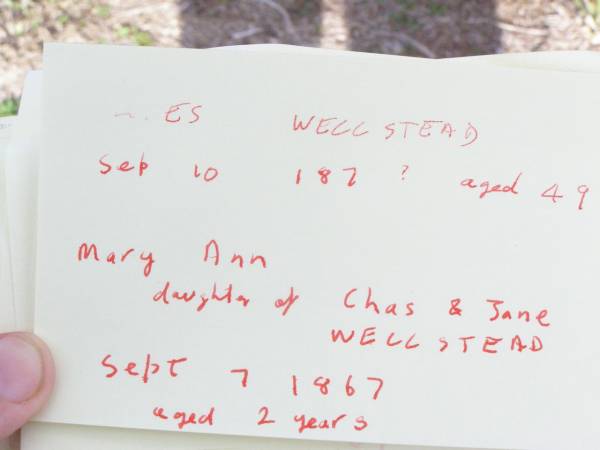 ES WELLSTEAD
Sep 10 187 ? aged 49
Mary Ann
daughter of Chas & Jane
WELLSTEAD
Sept 7 1867
aged 2 years